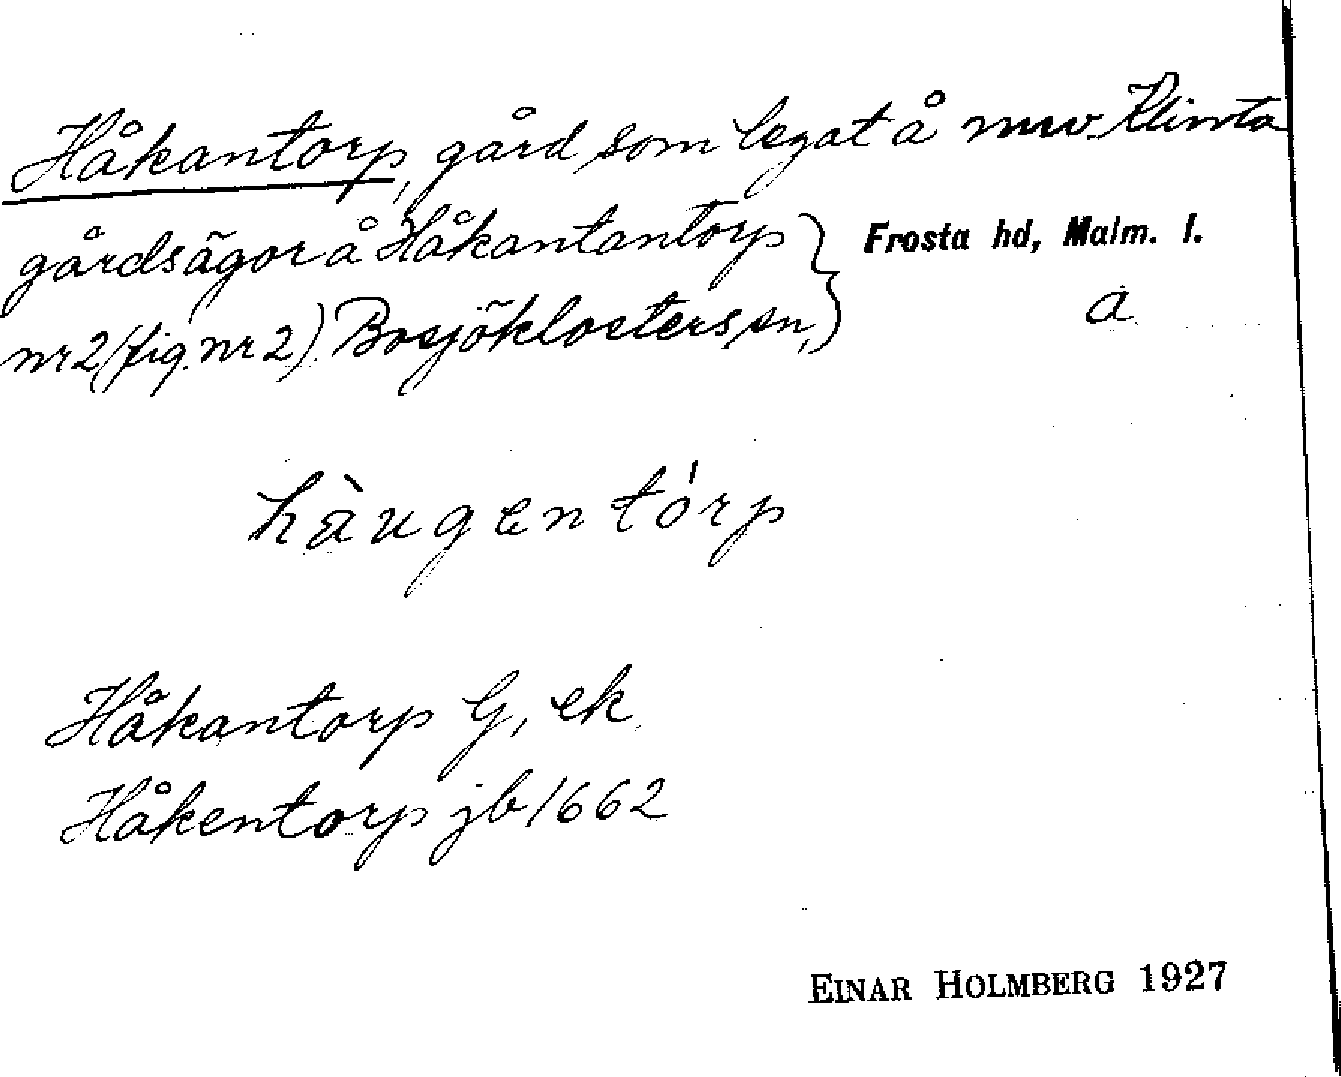 Håkantorp, gård som legat å nuv. Klinta
gårdsägor å Håkantantorp
nr 2 (fig. nr 2). Bosjöklosters sn,
Frosta hd, Malm. l.
a
hàugentórp
Håkantorp G, ek
Håkentorp jb 1662
EINAR HOLMBERG 1927